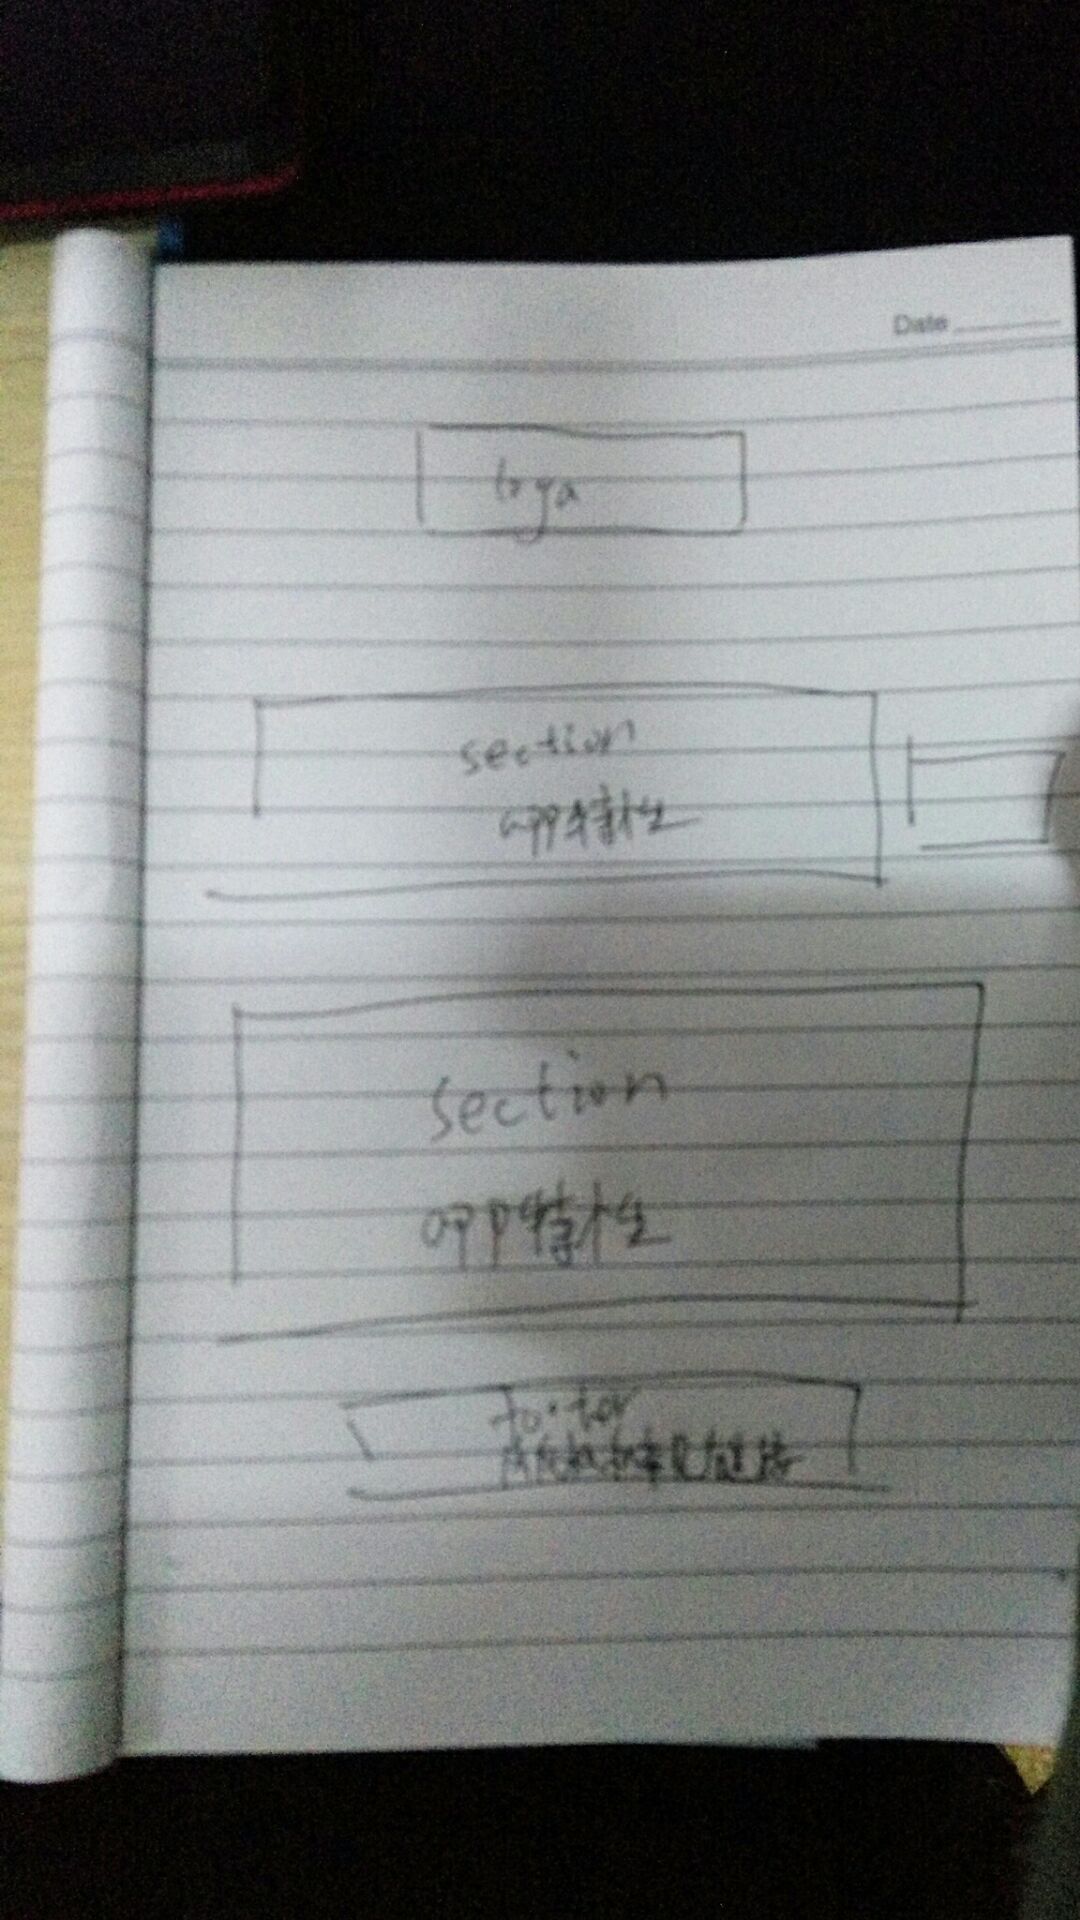 Date
section
app特性
section
app特性
footer